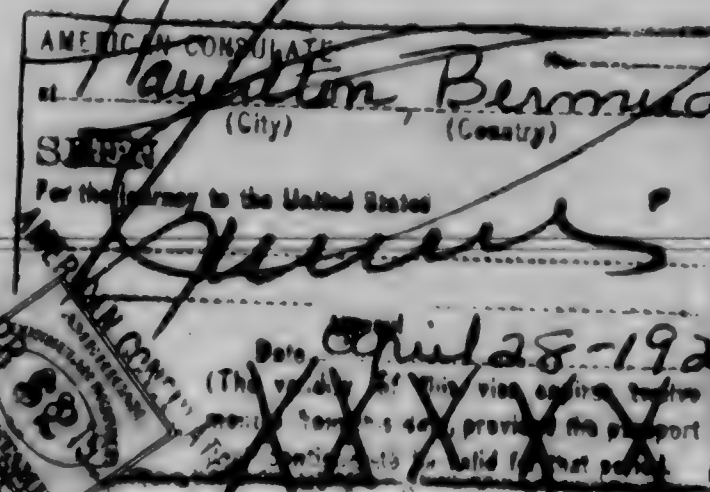 AMERICAN CONSULATE
at Hamilton, Bermud
(City) (Country)
SEEN
For the journey to the United States
Date April 28-192
(The validity of this visa expires twelve
months from this date, provided the passport
continues to be valid for that period.
AMERICAN CONSULATE
AMERICAN